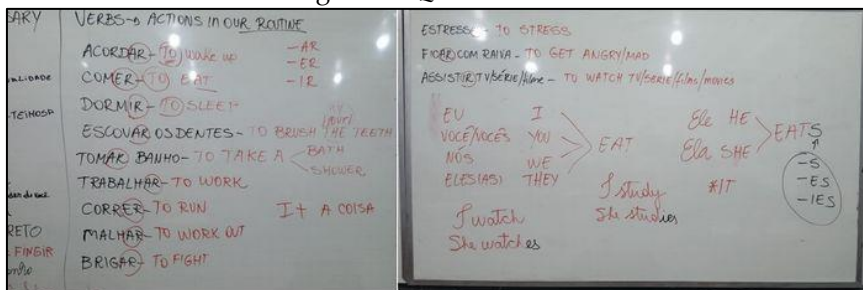 SSARY
VERBS→ ACTIONS IN OUR ROUTINE
ACORDAR - TO wake up
-AR
COMER - TO EAT
-ER
-IR
DORMIR - TO SLEEP
ESCOVAR OS DENTES - TO BRUSH THE TEETH
TOMAR BANHO - TO TAKE A
BATH
SHOWER
TRABALHAR - TO WORK
CORRER - TO RUN
It A COISA
MALHAR - TO WORK OUT
BRIGAR - TO FIGHT
TEIMOSA
RETO
FINGIR
TO STRESS
FICAR COM RAIVA - TO GET ANGRY/MAD
ASSISTIR TV/SÉRIE/filme - TO WATCH TV/SERIE/films/movies
EU I
VOCÊ/VOCÊS YOU
NÓS WE
ELES(AS) THEY
EAT
Ele HE
Ela SHE
*IT
EATS
-S
-ES
-IES
I study
She studies
I watch
She watches